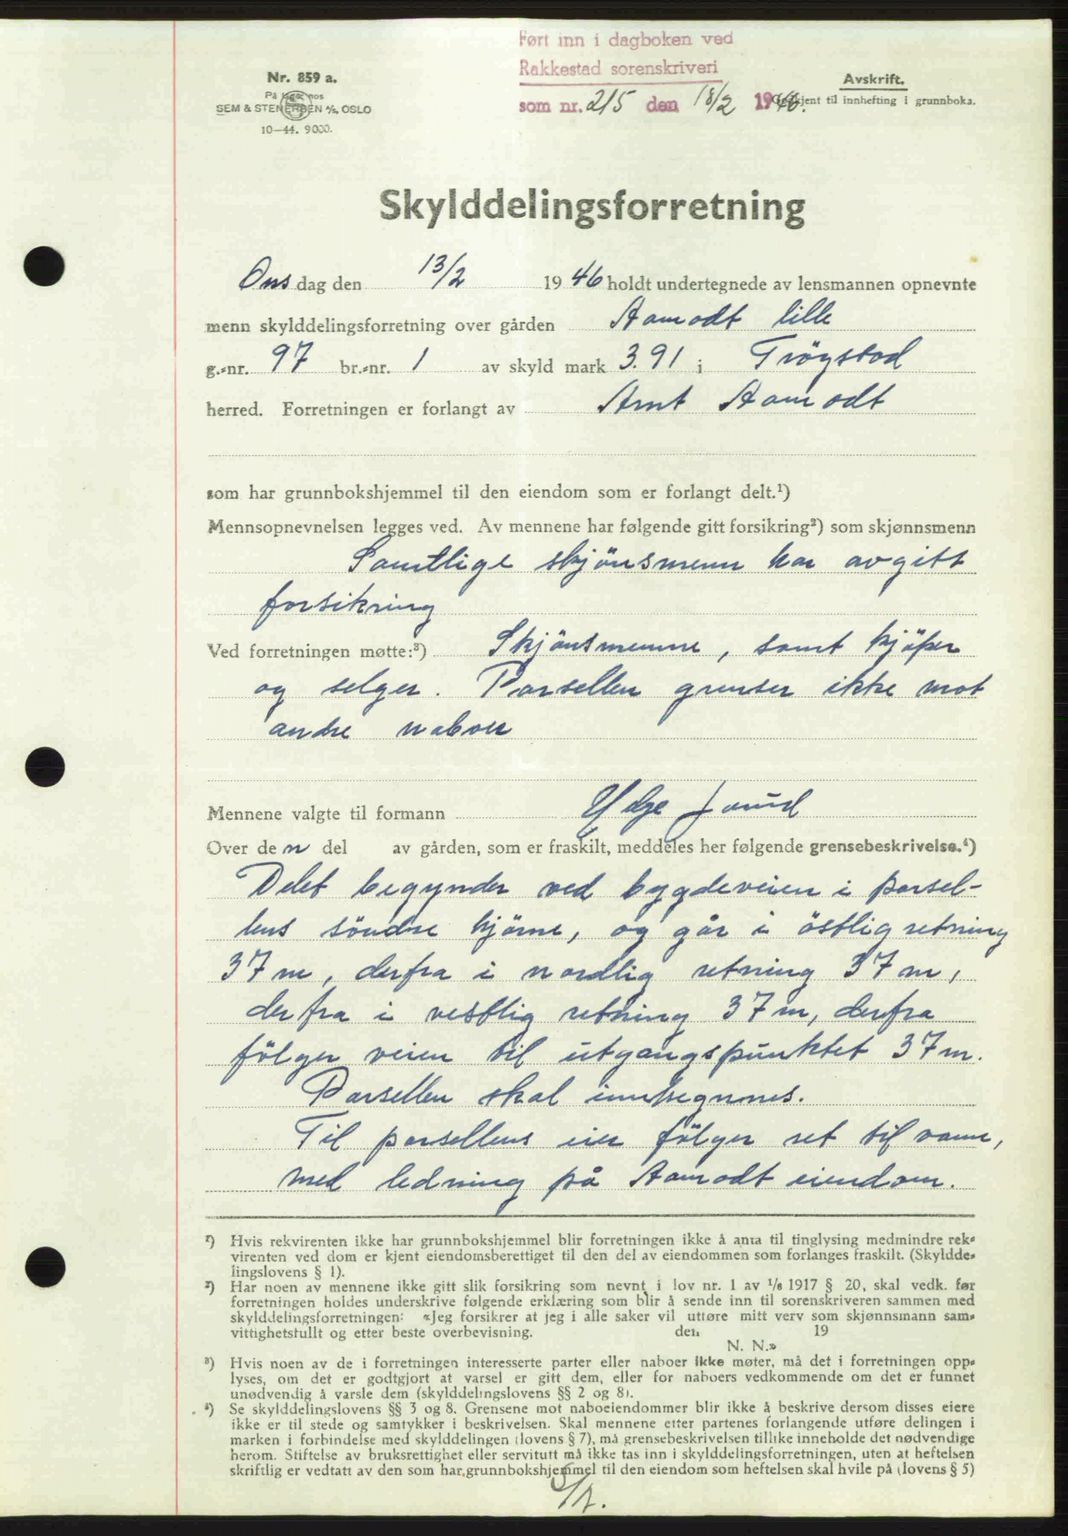 Ført inn i dagboken ved
Rakkestad sorenskriveri
som nr. 215 den 18/2 1946.
Nr. 859 a.
På lager hos
SEM & STENERSEN A/S, OSLO
10-44. 9000.
Avskrift.
Godkjent til innhefting i grunnboka.
Skylddelingsforretning
Ons dag den 13/2 1946 holdt undertegnede av lensmannen opnevnte
menn skylddelingsforretning over gården Aamodt lille
g.-nr. 97 br.-nr. 1 av skyld mark 3.91 i Trögstad
herred. Forretningen er forlangt av Arnt Aamodt
som har grunnbokshjemmel til den eiendom som er forlangt delt.¹)
Mennsopnevnelsen legges ved. Av mennene har følgende gitt forsikring²) som skjønnsmenn
Samtlige skjönsmenn har avgitt
forsikring
Ved forretningen møtte:³) Skjönsmenne, samt kjöper
og selger. Parsellen grenser ikke mot
andre naboer
Mennene valgte til formann Helge
Over den del av gården, som er fraskilt, meddeles her følgende grensebeskrivelse.⁴)
Delet begynder ved bygdeveien i parsel-
lens söndre hjörne, og går i östlig retning
37 m, derfra i nordlig retning 37 m,
derfra i vestlig retning 37 m, derfra
fölger veien til utgangspunktet 37 m.
Parsellen skal inn
Til parsellens eier fölger ret til vann,
med ledning på Aamodt eiendom.
¹) Hvis rekvirenten ikke har grunnbokshjemmel blir forretningen ikke å anta til tinglysing medmindre rek-
virenten ved dom er kjent eiendomsberettiget til den del av eiendommen som forlanges fraskilt. (Skyldde-
lingslovens § 1).
²) Har noen av mennene ikke gitt slik forsikring som nevnt i lov nr. 1 av 1/6 1917 § 20, skal vedk. før
forretningen holdes underskrive følgende erklæring som blir å sende inn til sorenskriveren sammen med
skylddelingsforretningen: «Jeg forsikrer at jeg i alle saker vil utføre mitt verv som skjønnsmann sam-
vittighetsfullt og etter beste overbevisning. den 19
N. N.»
³) Hvis noen av de i forretningen interesserte parter eller naboer ikke møter, må det i forretningen opp-
lyses, om det er godtgjort at varsel er gitt dem, eller for naboers vedkommende om det er funnet
unødvendig å varsle dem (skylddelingslovens §§ 2 og 8).
⁴) Se skylddelingslovens §§ 3 og 8. Grensene mot naboeiendommer blir ikke å beskrive dersom disses eiere
ikke er til stede og samtykker i beskrivelsen. Skal mennene etter partenes forlangende utføre delingen i
marken i forbindelse med skylddelingen (lovens § 7), må grensebeskrivelsen tillike inneholde det nødvendige
herom. Stiftelse av bruksrettighet eller servitutt må ikke tas inn i skylddelingsforretningen, uten at heftelsen
skriftlig er vedtatt av den som har grunnbokshjemmel til den eiendom som heftelsen skal hvile på (lovens § 5)